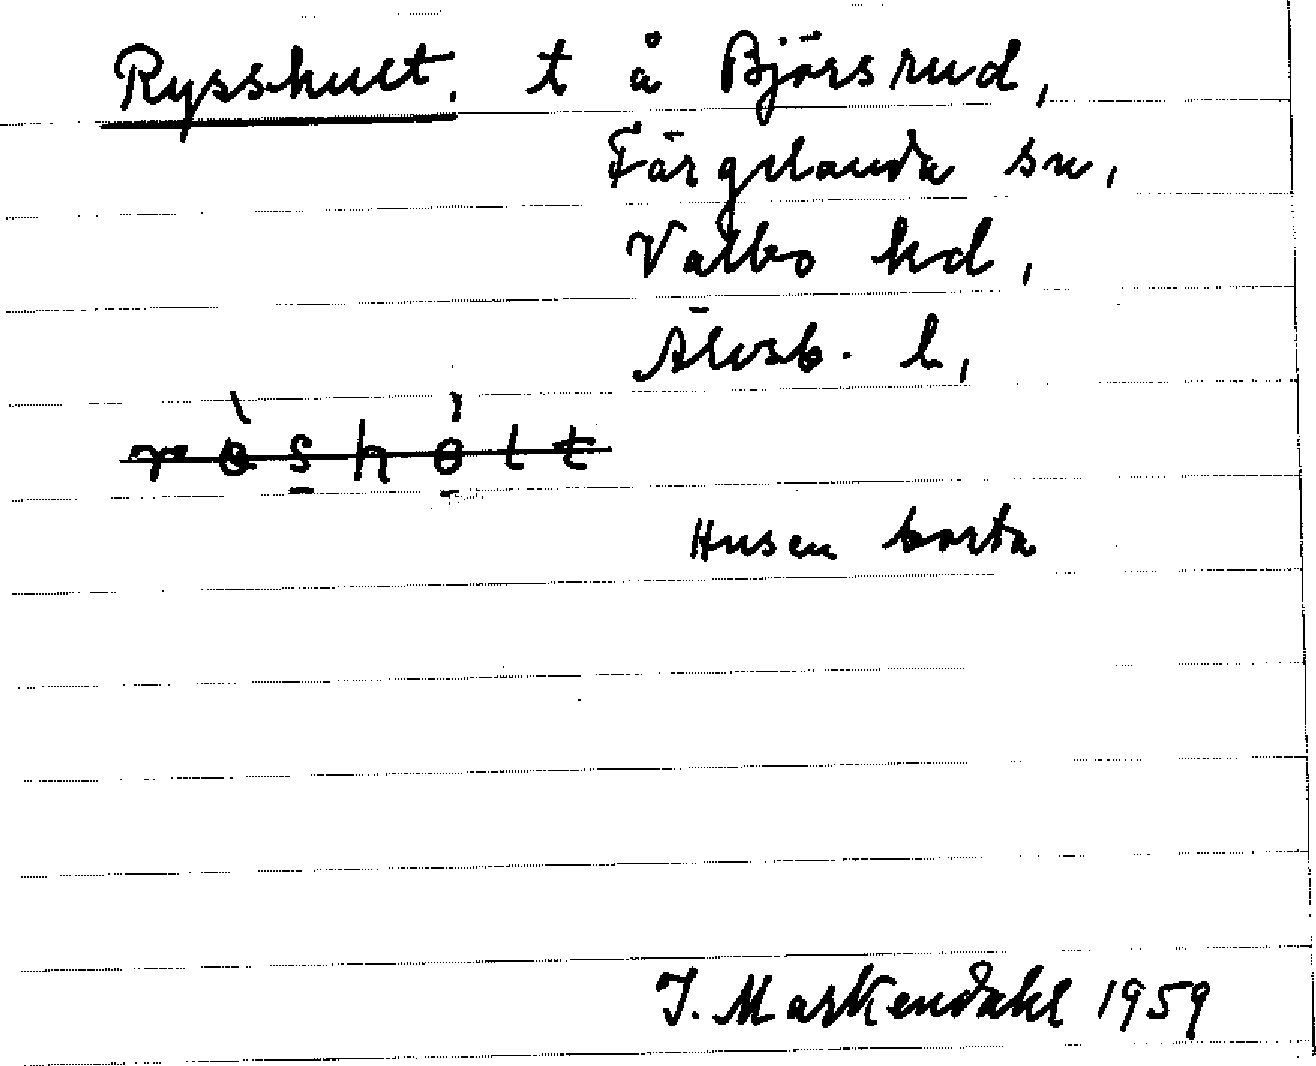 Rysshult, t å Björsrud,
Färgelanda sn,
Valbo hd,
Älvsb. l,
Husen borta
J. Markendahl 1959